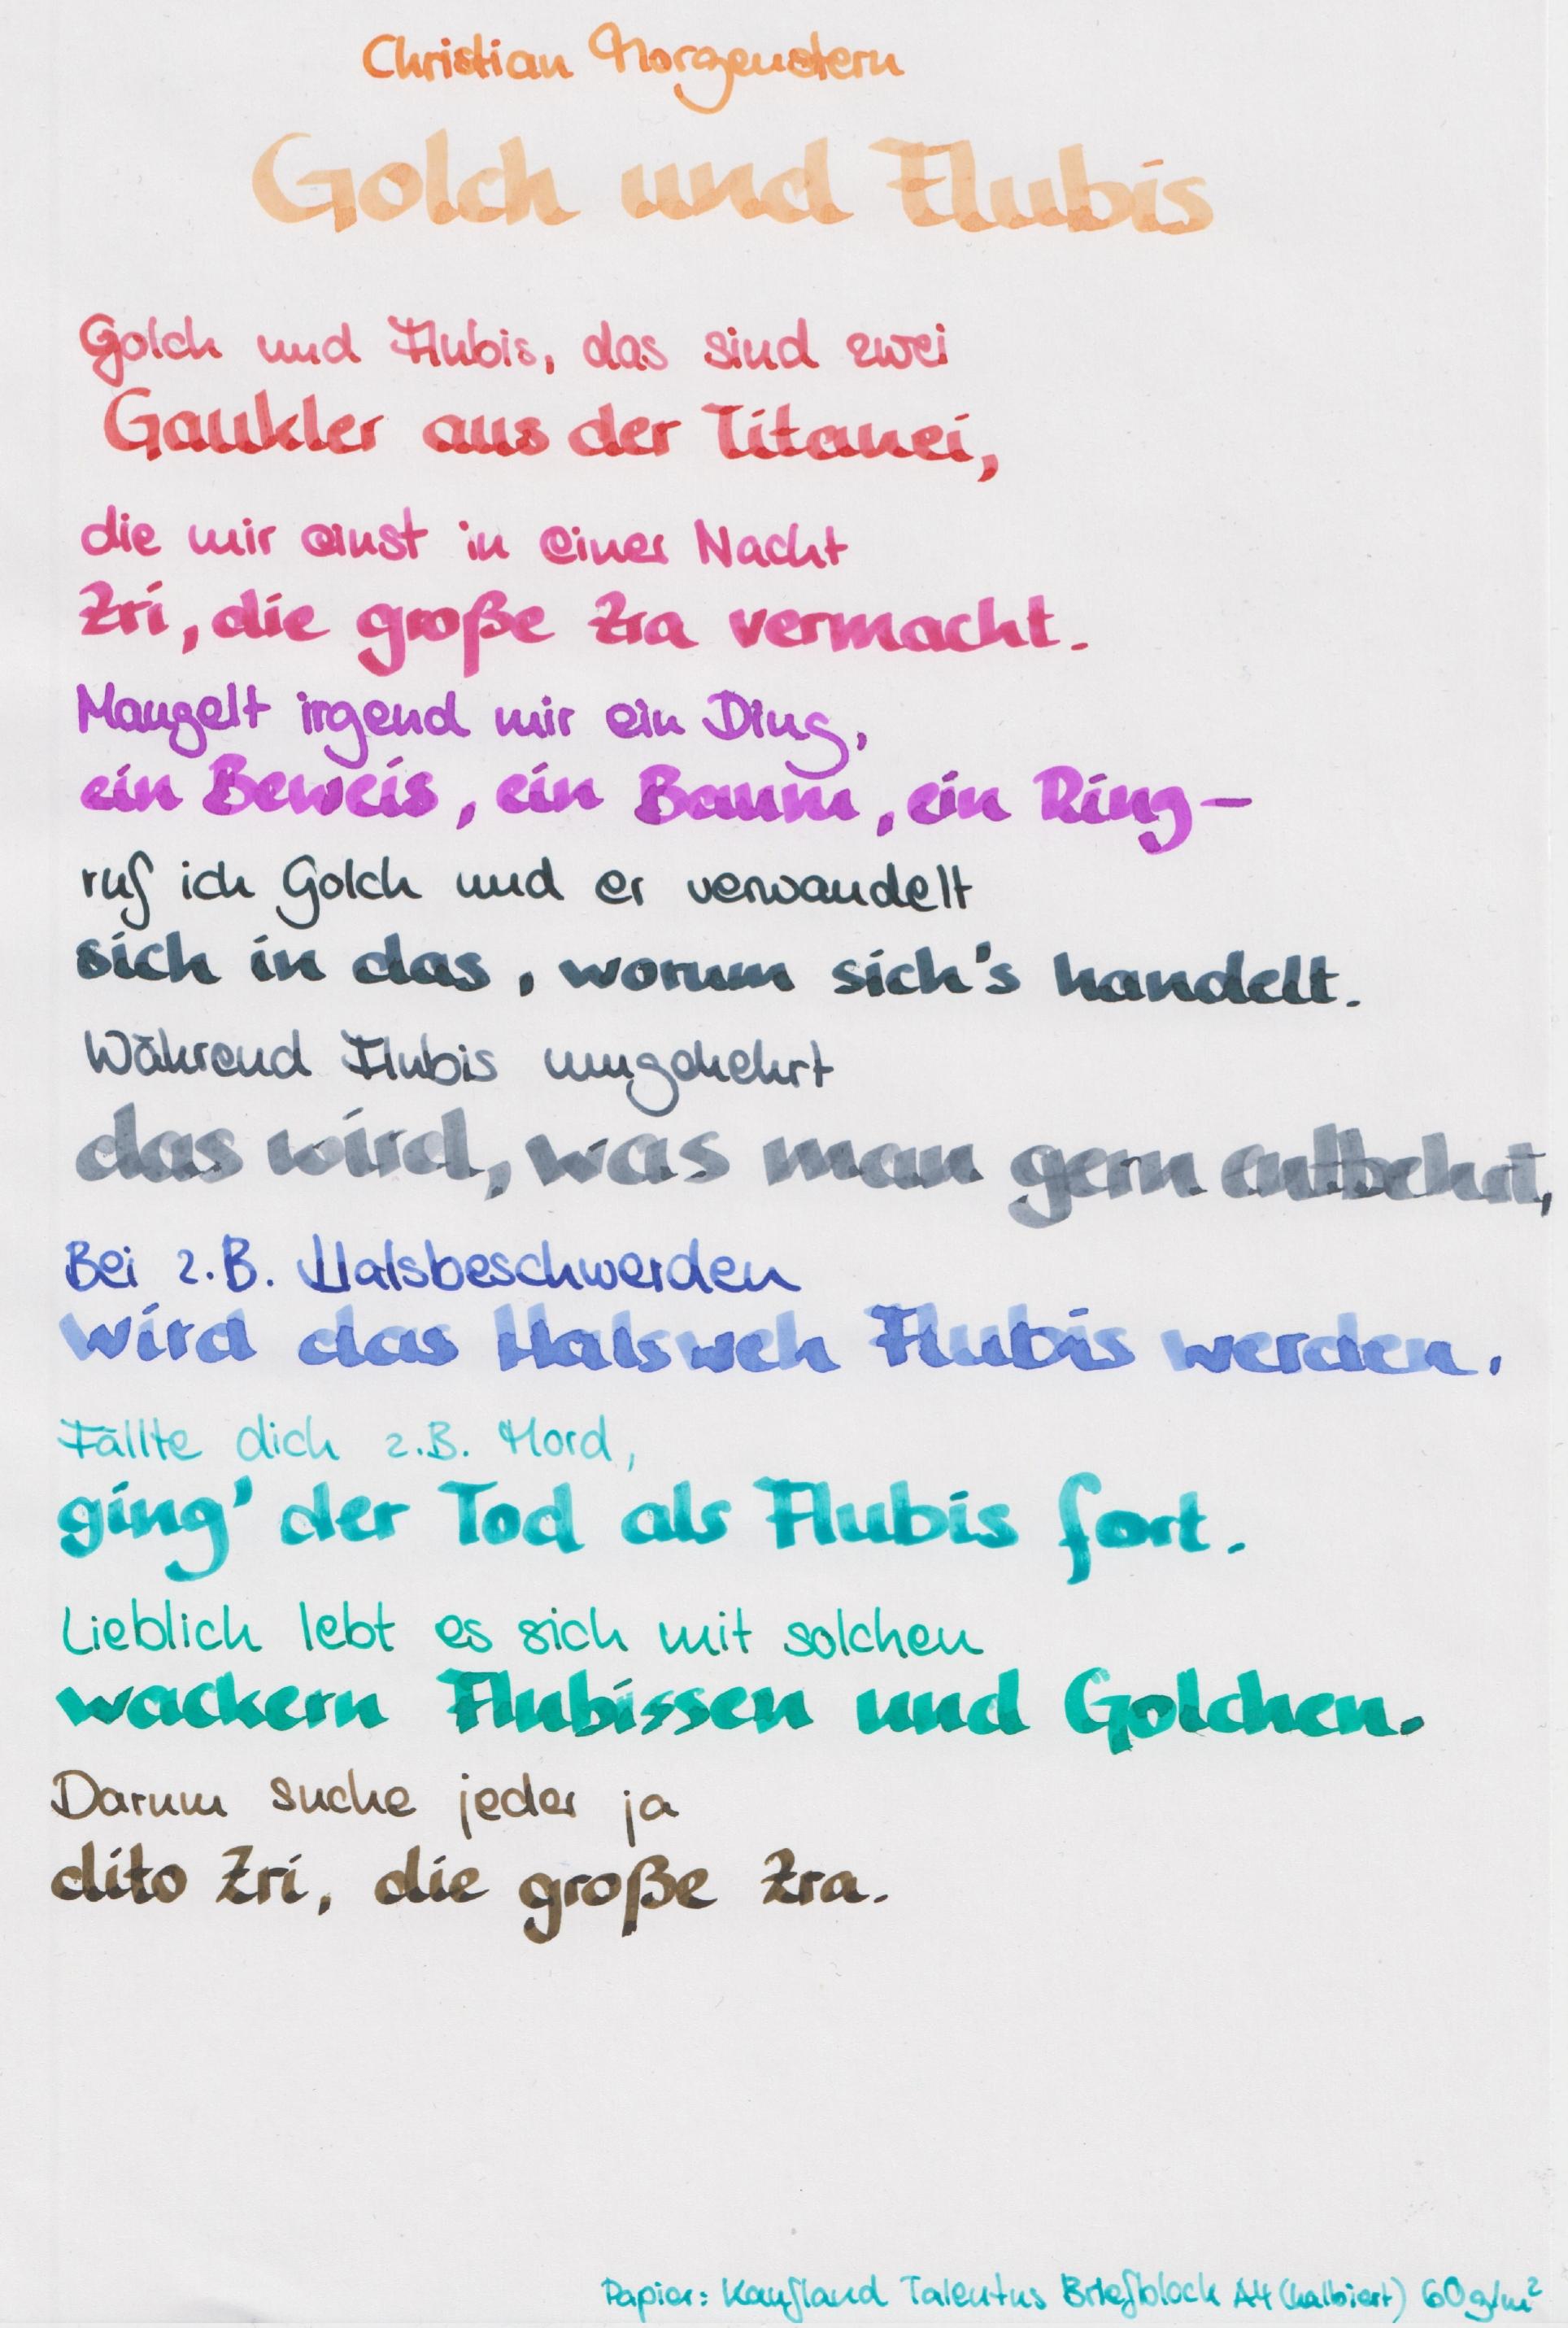 Christian Morgenstern
Golch und Flubis
Golch und Flubis, das sind zwei
Gaukler aus der Titanei,
die mir einst in einer Nacht
Zri, die große Zra vermacht.
Mangelt irgend mir ein Ding,
ein Beweis, ein Baum, ein Ring–
ruf ich Golch und er verwandelt
sich in das, worum sich's handelt.
Während Flubis umgekehrt
das wird, was man gern entbehrt,
Bei z.B. Halsbeschwerden
wird das Halsweh Flubis werden.
Fällte dich z.B. Mord,
ging' der Tod als Flubis fort.
Lieblich lebt es sich mit solchen
wackern Flubissen und Golchen.
Darum suche jeder ja
dito Zri, die große Zra.
Papier: Kaufland Talentus Briefblock A4 (halbiert) 60g/m²